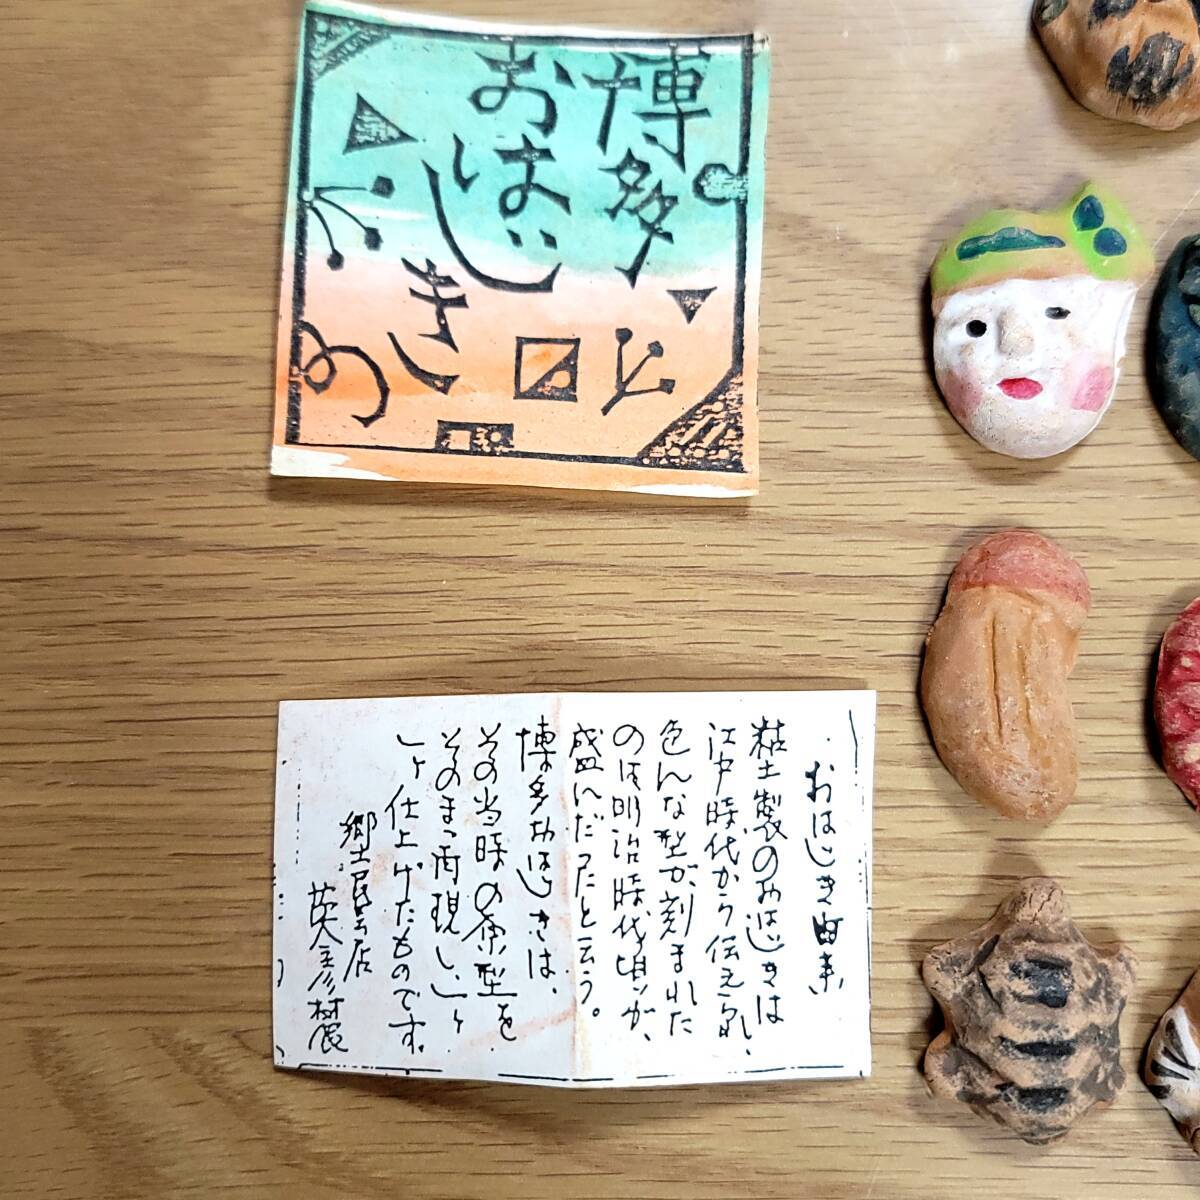 博多
おはじき
おはじき由来
粘土製のおはじきは
江戸時代から伝えられ、
色んな型が刻まれた
のは明治時代頃が、
盛んだったと云う。
博多おはじきは、
その当時の原型を
そのまゝ再現し、
して仕上げたものです。
郷土民芸店
英彦村農